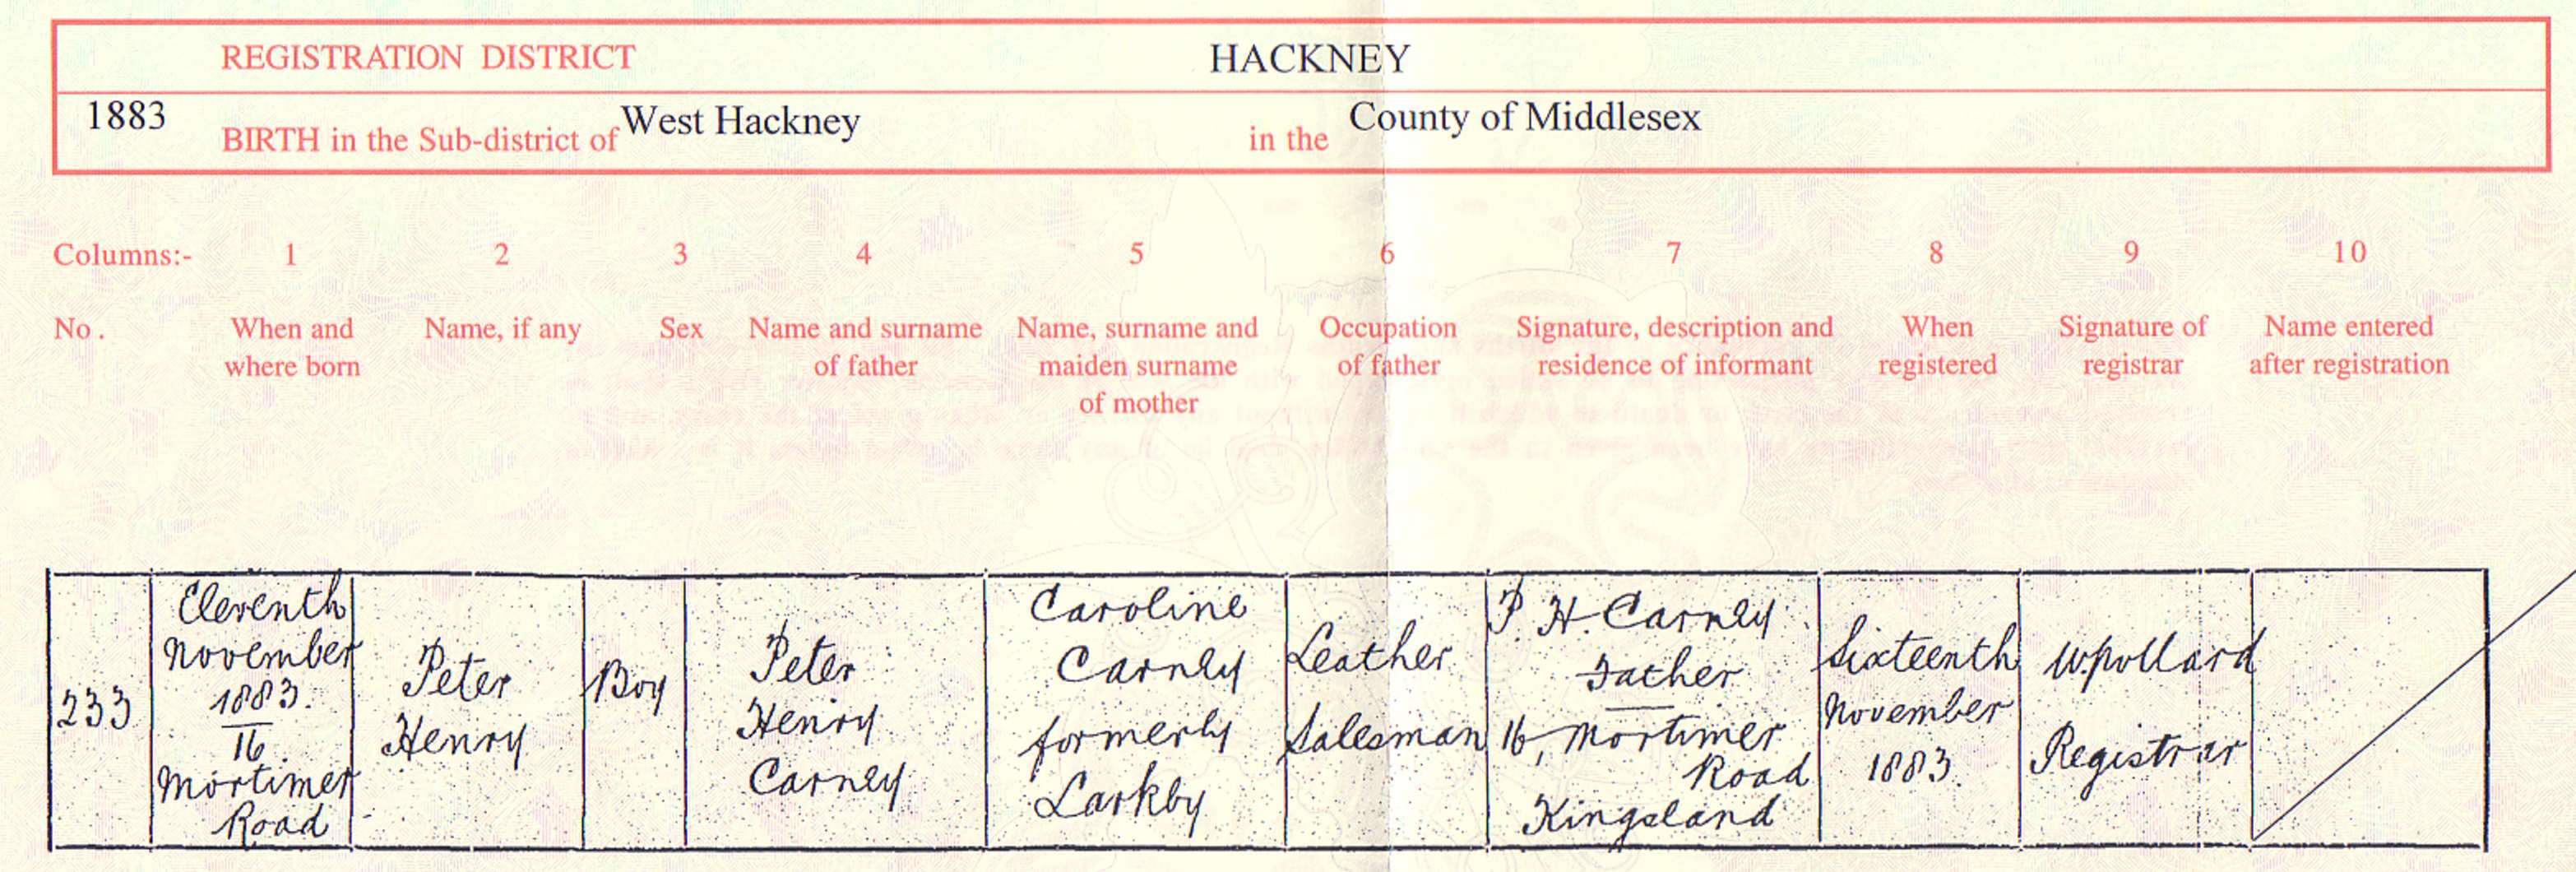 REGISTRATION DISTRICT HACKNEY
1883 BIRTH in the Sub-district of West Hackney in the County of Middlesex
Columns:- 1 2 3 4 5 6 7 8 9 10
No. When and where born
Name, if any
Sex
Name and surname of father
Name, surname and maiden surname of mother
Occupation of father
Signature, description and residence of informant
When registered
Signature of registrar
Name entered after registration
233
Eleventh
November
1883.
16
Mortimer
Road
Peter
Henry
Boy
Peter
Henry
Carney
Caroline
Carney
formerly
Larkby
Leather
Salesman
P. H. Carney
Father
16, Mortimer
Road
Kingsland
Sixteenth
November
1883.
W. Pollard
Registrar